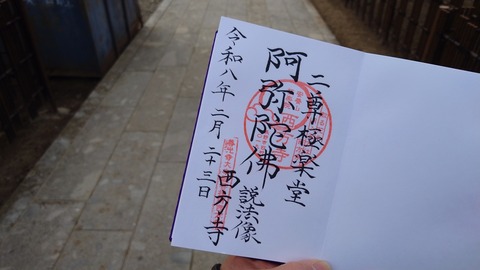 二尊極楽堂
阿弥陀佛
説法像
西方寺
令和八年二月二十三日
西方寺